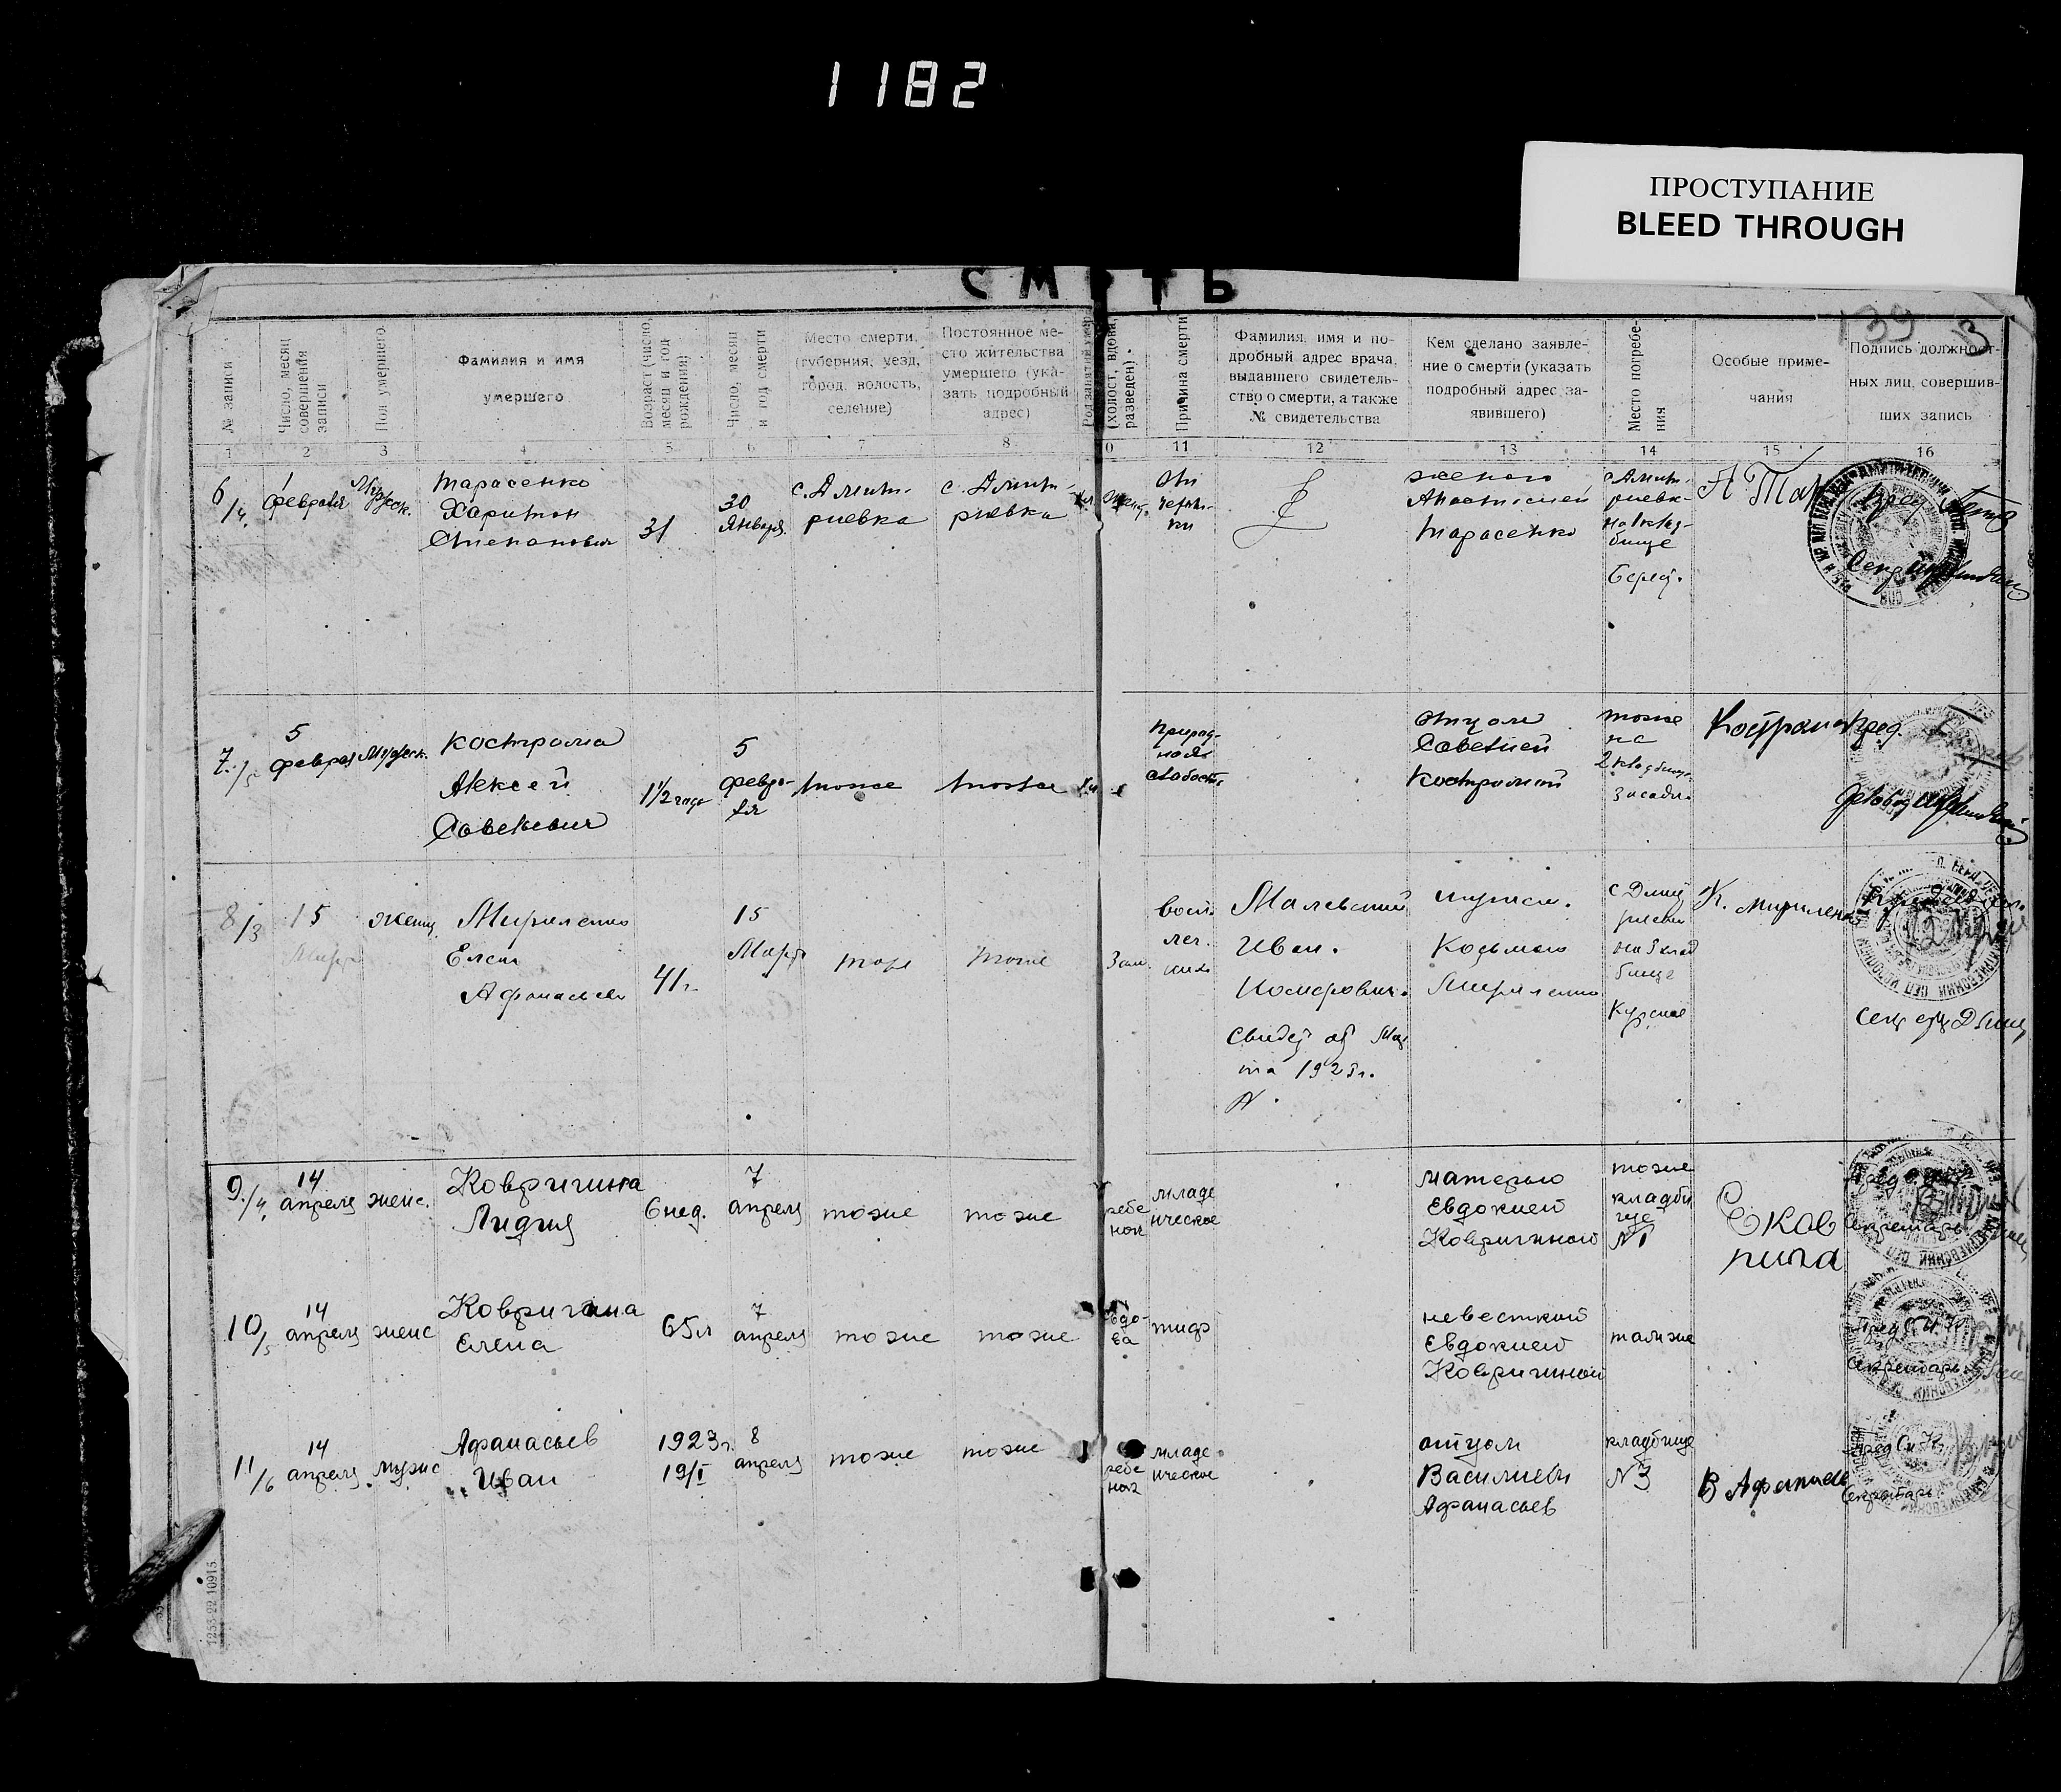 1182
ПРОСТУПАНИЕ
BLEED THROUGH
СМЕРТЬ
139
№ записи
Число, месяц совершения записи
Пол умершего
Фамилия и имя
умершего
Возраст (число, месяц и год рождения)
Число, месяц и год смерти
Место смерти,
(губерния, уезд,
город, волость,
селение)
Постоянное ме-
сто жительства
умершего (ука-
зать подробный
адрес)
(холост, вдова, разведен)
Причина смерти
Фамилия, имя и по-
дробный адрес врача,
выдавшего свидетель-
ство о смерти, а также
№ свидетельства
Кем сделано заявле-
ние о смерти (указать
подробный адрес за-
явившего)
Место погребе-
ния
Особые приме-
чания
Подпись должност-
ных лиц, совершив-
ших запись
1 2 3 4 5 6 7 8 0 11 12 13 14 15 16
6/4.
1
февраля
Мужск.
Тарасенко
Харитон
Степанович
31
30
Января.
с. Дмит-
риевка
с. Дмит-
риевка
женою
Анастасией
Тарасенко
с Дмит-
риевк-
на 1 клад-
бище
Берез.
А Тар
Пред
Секр
7./5
5
феврал
Мужеск.
Кострома
Алексей
Савельевич
1 1/2 года
5
февра-
ля
тоже
тоже
Природ-
ная
слабост.
отцом
Савелией
Костромой
тоже
на
2 кладбище
Костром
Пред.
8/3
15
Март
женщ.
Мириленко
Елен
Афанасьев
41 г.
15
Март
тоже
тоже
Зам.
восп.
лег.
ких
Малевский
Иван.
свидет от Мар
та 1925г.
N.
мужем.
Косьмою
Мириленко
с Дмит
риевки
на 3 клад
бище
Курское
К. Мириленко
9./4.
14
апреля
женс.
Ковригина
Лидия
6 нед.
7
апреля
тоже
тоже
ребе
нок
младе
ническое
матерью
Евдокией
Ковригиной
тоже
кладби
ще
№1
Е Ков
рига
Пред
Секретарь
10/5
14
апреля
женс
Ковригина
Елена
65 л
7
апреля
тоже
тоже
вдо-
ва
тиф
невесткой
Евдокией
Ковригиной
там же
Пред С.И.К.
Секретарь
11/6
14
апреля
мужс
Афанасьев
Иван
1923 г.
19/I
8
апреля
тоже
тоже
ребе
нок
младе
ническое
отцом
Василием
Афанасьев
кладбище
№3
В Афанасьев
Пред С.И.К.
Секретарь
1233-22 10915